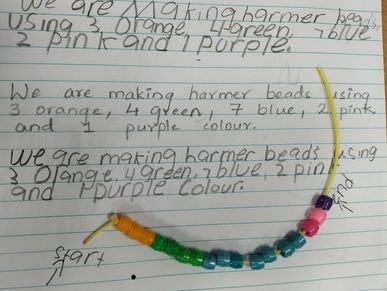 We are Making harmer beads
using 3 Orange, 4 green, 7 blue
2 pink and 1 purple.
We are making harmer beads using
3 orange, 4 green, 7 blue, 2 pink
and 1 purple colour.
We are making harmer beads using
3 Orange, 4 green, 7 blue, 2 pink
and 1 Purple Colour.
End
Start